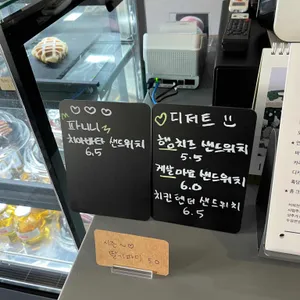 파니니
치아바타 샌드위치
6.5
디저트
햄치즈 샌드위치
5.5
계란마요 샌드위치
6.0
치킨텐더 샌드위치
6.5
5.0